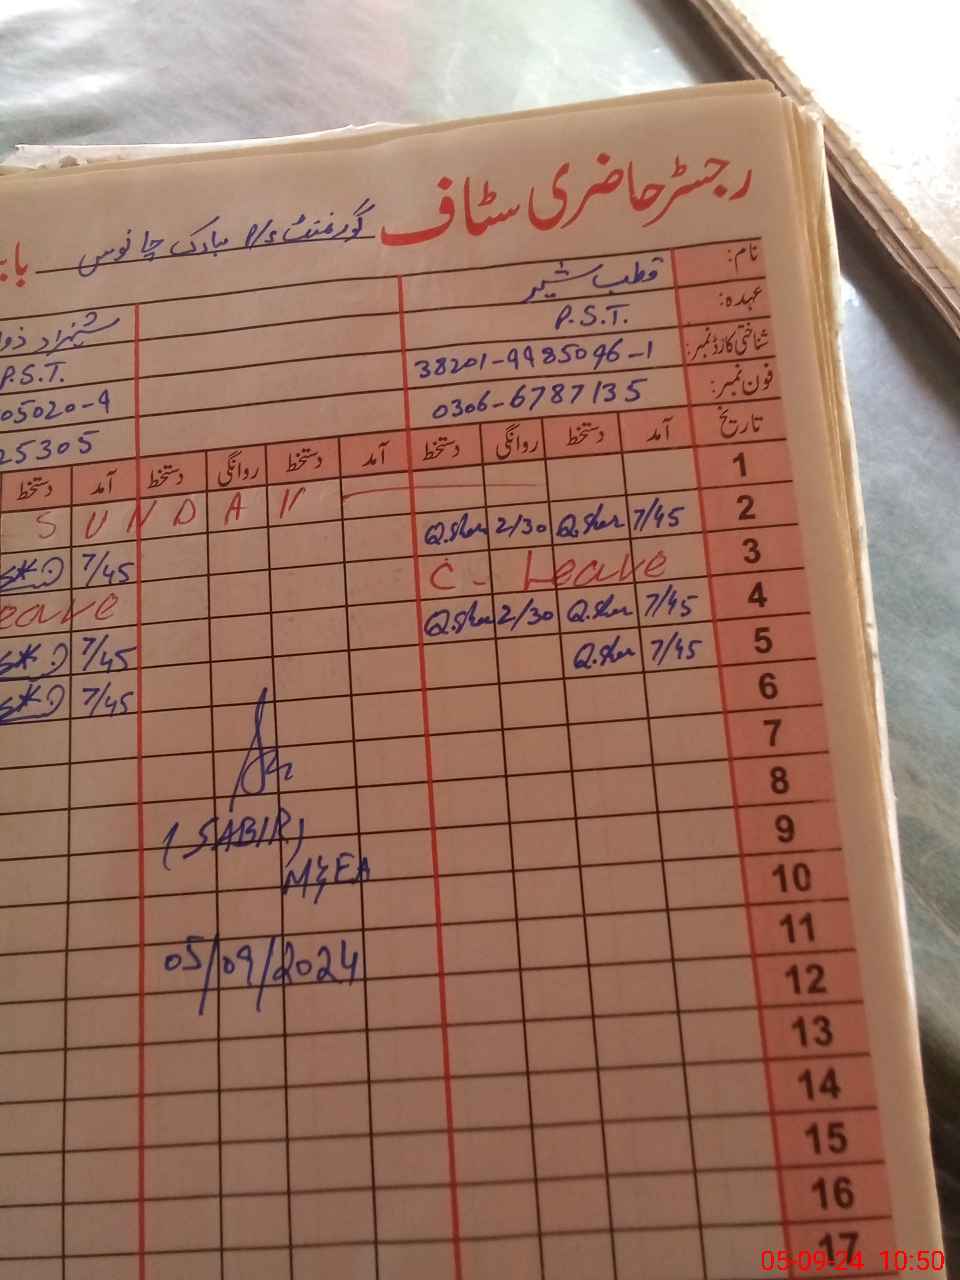 رجسٹر حاضری سٹاف گورنمنٹ P/S مبارک چانوس
نام: قطب شیر شہزاد
عہدہ: P.S.T. P.S.T.
شناختی کارڈ نمبر: 38201-9985096-1 05020-9
فون نمبر: 0306-6787135 25305
تاریخ آمد دستخط روانگی دستخط آمد دستخط روانگی دستخط آمد دستخط
1 S U N D A Y
2 7/45 Q.Sher 2/30 Q.Sher 7/45
3 C - Leave eave
4 7/45 Q.Sher 2/30 Q.Sher 7/45
5 7/45 Q.Sher 7/45
6
7
8
9
(SABIR)
10
MEA
11
12
05/09/2024
13
14
15
16
17
05-09-24 10:50